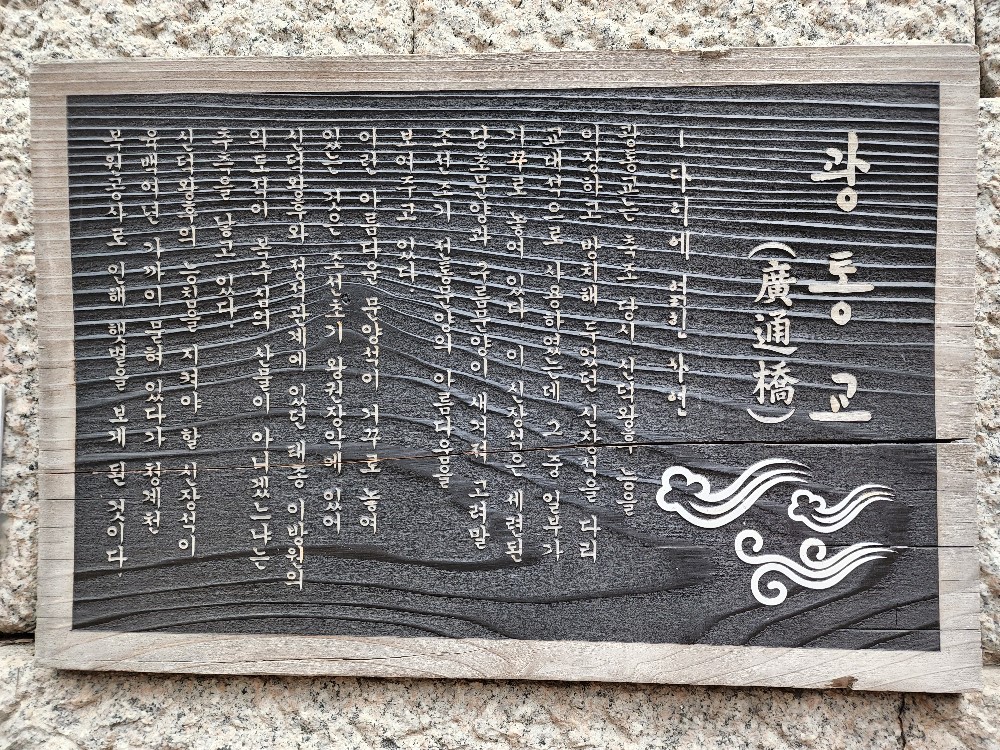 광 통 교
(廣通橋)
ㅡ 다리에 얽힌 사연
광통교는 축조 당시 신덕왕후 능을
이장하고 방치해 두었던 신장석을 다리
교대석으로 사용하였는데 그 중 일부가
거꾸로 놓여 있다. 이 신장석은 세련된
당초문양과 구름문양이 새겨져 고려말
조선초기 전통문양의 아름다움을
보여 주고 있다.
이런 아름다운 문양석이 거꾸로 놓여
있는 것은 조선초기 왕권장악에 있어
신덕왕후와 정적관계에 있던 태종 이방원의
의도적인 복수심의 산물이 아니겠느냐는
추측을 낳고 있다.
신덕왕후의 능침을 지켜야 할 신장석이
육백여년 가까이 묻혀 있다가 청계천
복원공사로 인해 햇볕을 보게 된 것이다.